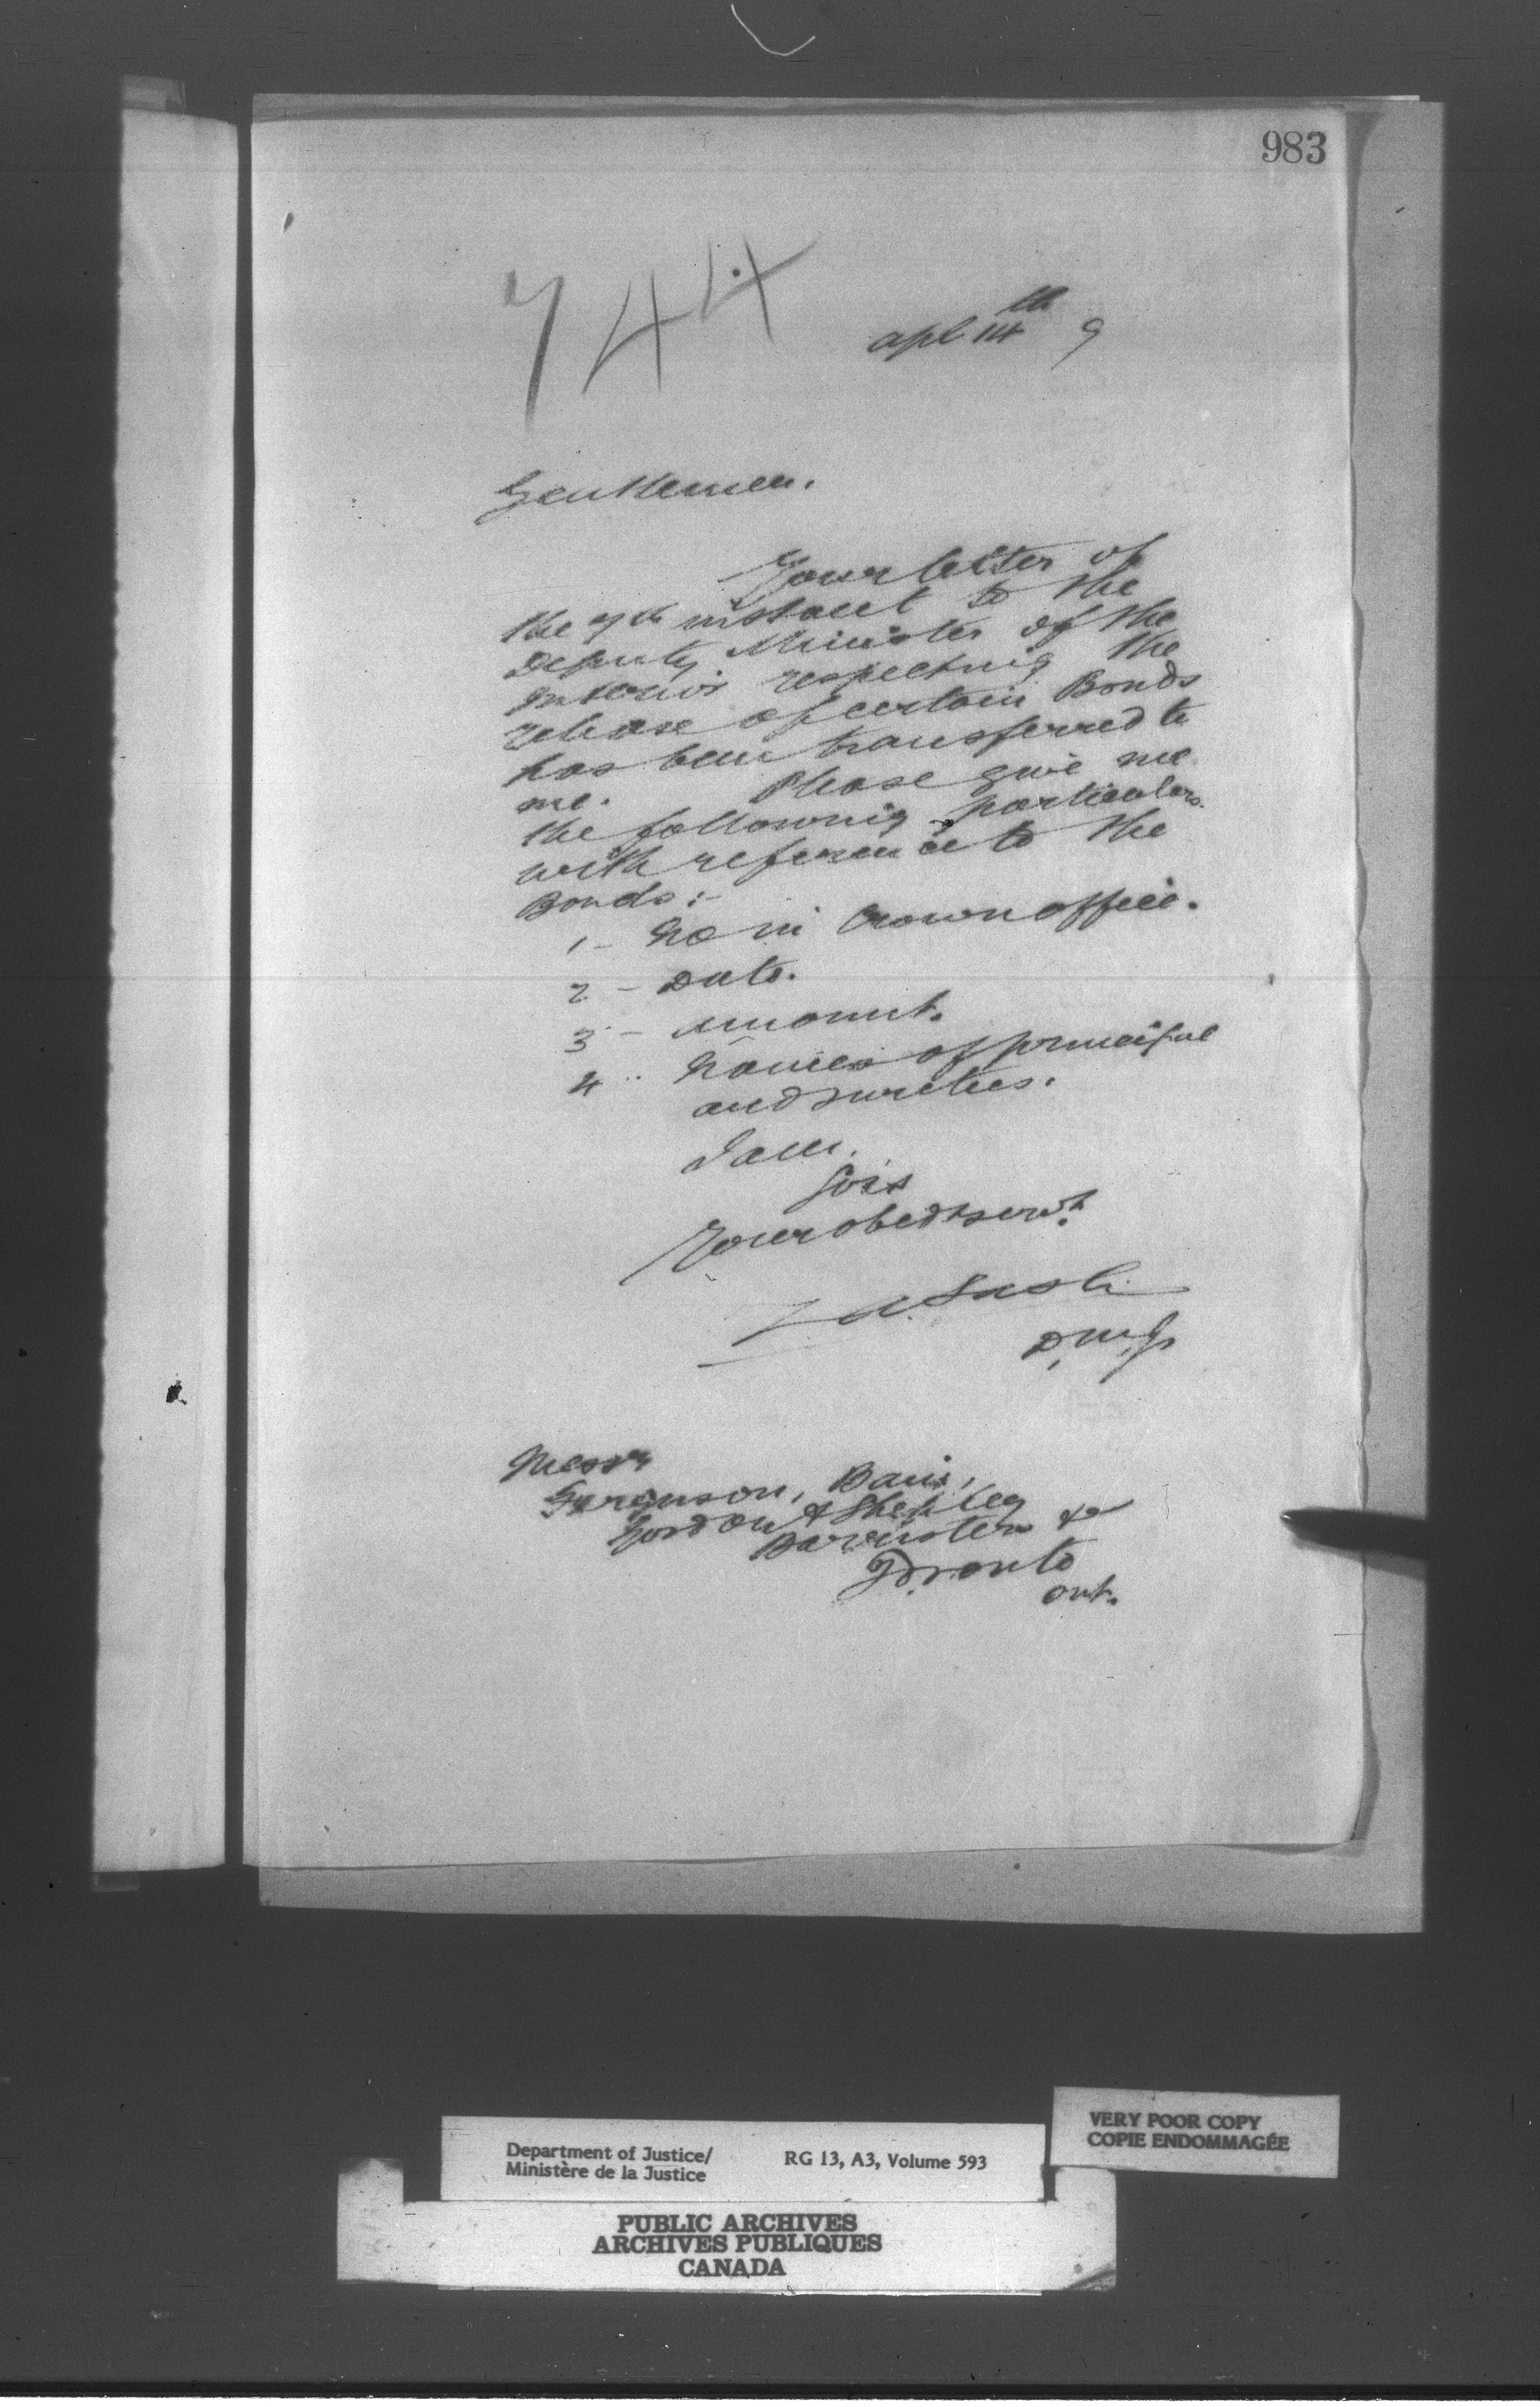 983
744
apl 14th 9
Gentlemen.
Your letter of
the 7th instant to the
Deputy Minister of the
Interior respecting the
release of certain Bonds
has been transferred to
me. Please give me
the following particulars
with reference to the
Bonds:-
1 - No in Crown office.
2 - Date.
3 - Amount.
4 - Names of principal
and sureties.
I am,
Sirs
Your obedt servt.
Z A Lash
D.M.J.
Messrs
Ferguson, Bain,
Gordon & Shepley
Barristers &c
Toronto
Ont.
VERY POOR COPY
COPIE ENDOMMAGÉE
Department of Justice/ RG 13, A3, Volume 593
Ministère de la Justice
PUBLIC ARCHIVES
ARCHIVES PUBLIQUES
CANADA